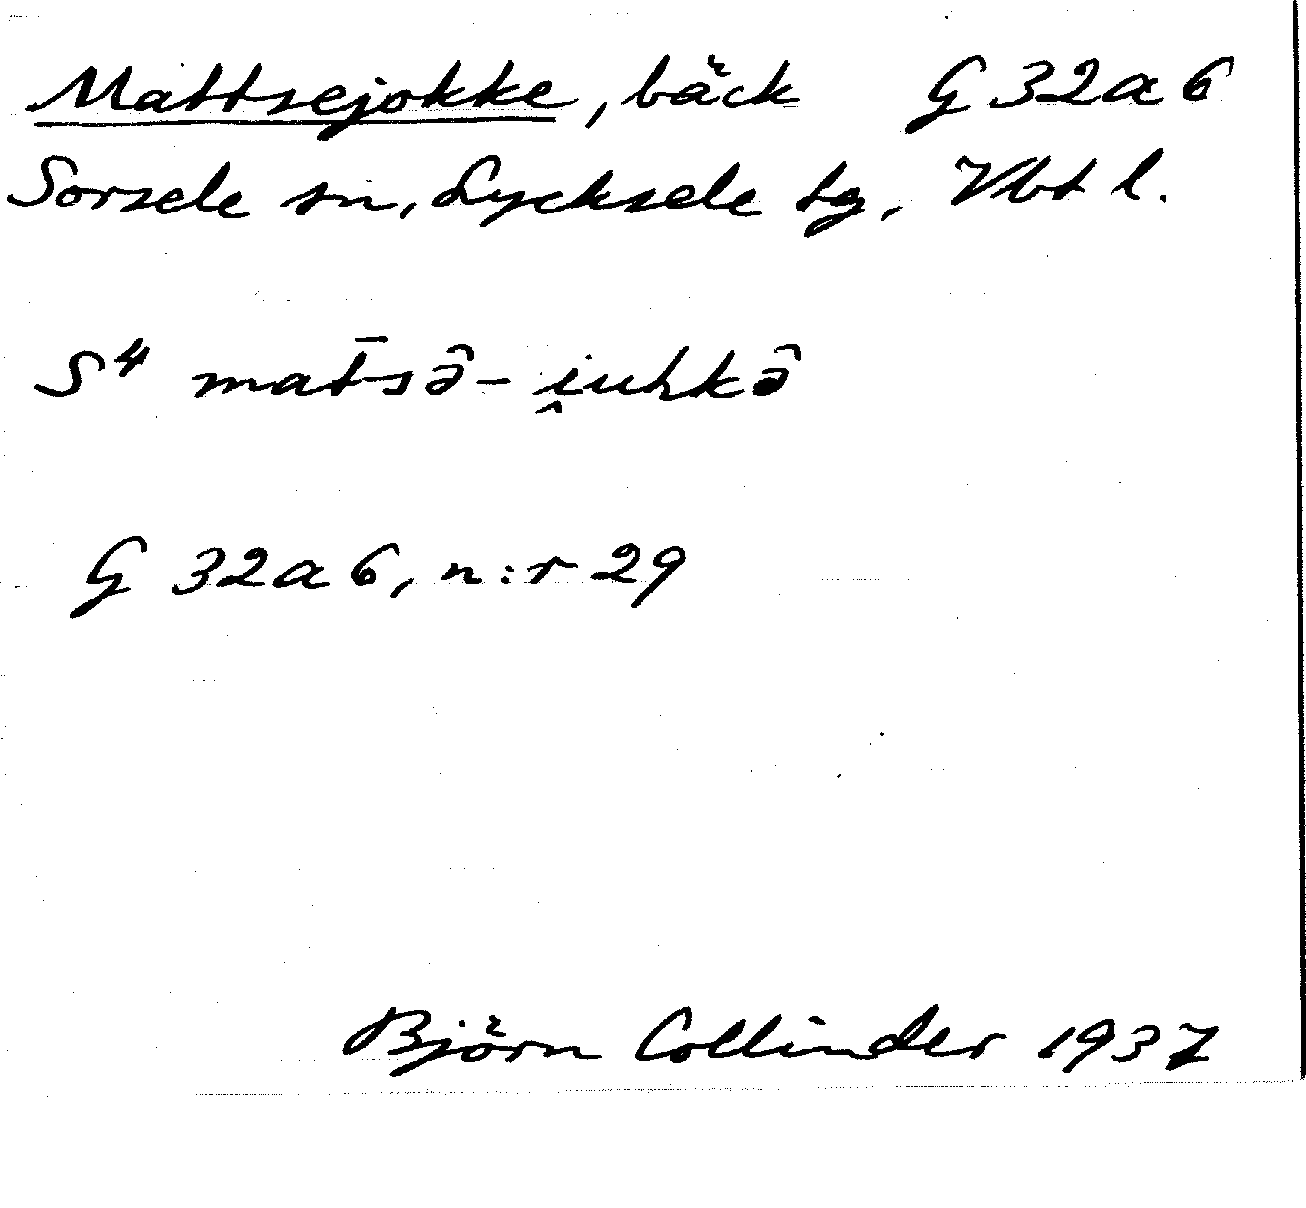 Mattsejokke, bäck G 32 a 6
Sorsele sn, Lycksele tg, Vbt l.
S⁴ mat̄sə̑-i̯uhkə̑
G 32 a 6, n:r 29
Björn Collinder 1937